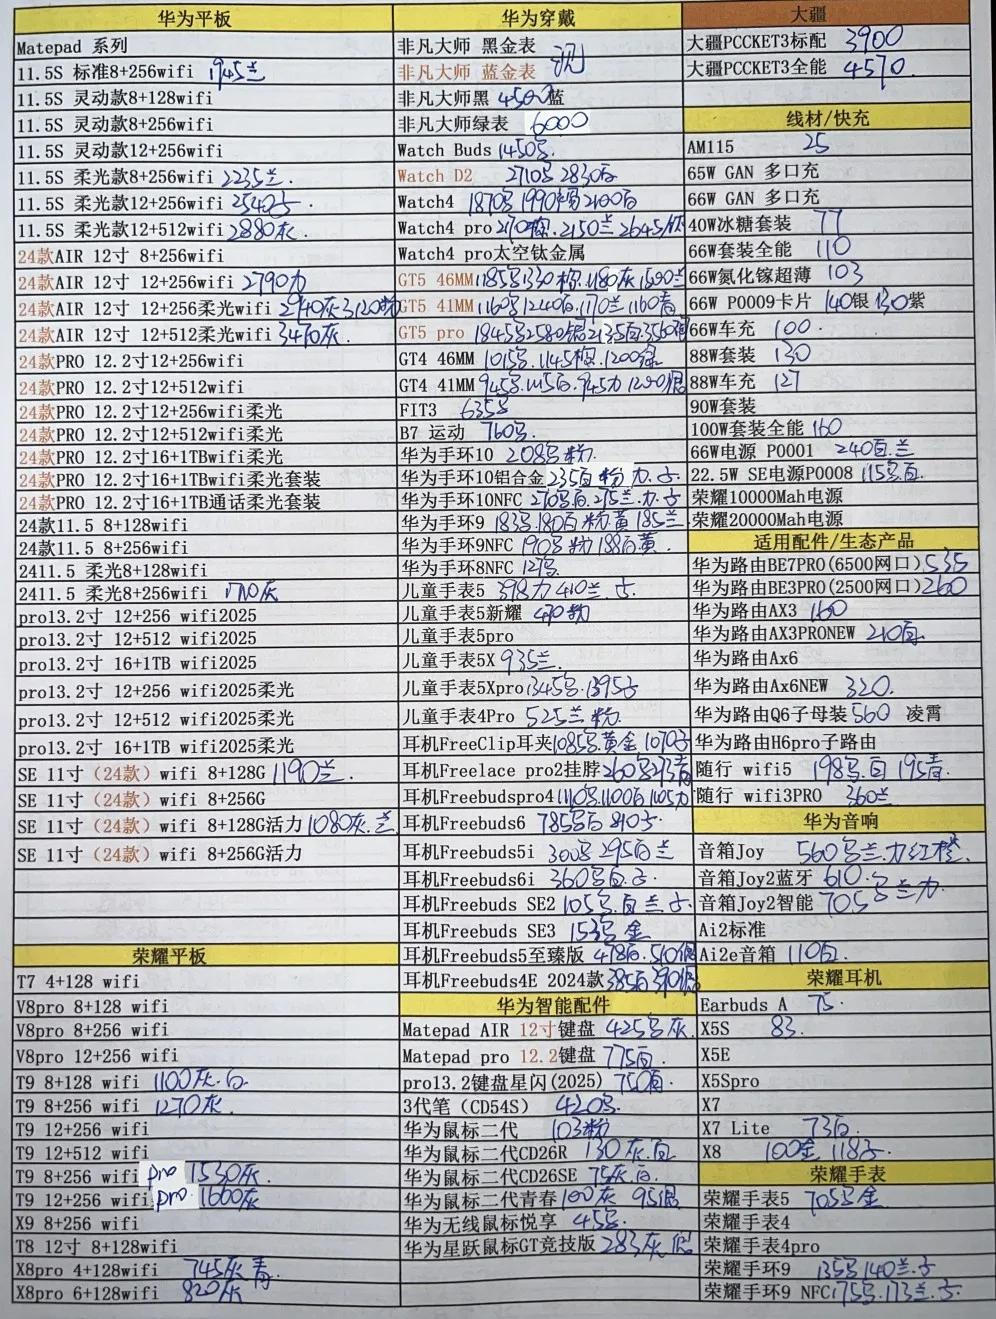 华为平板
Matepad 系列
11.5S 标准8+256wifi 1945兰
11.5S 灵动款8+128wifi
11.5S 灵动款8+256wifi
11.5S 灵动款12+256wifi
11.5S 柔光款8+256wifi 2235兰.
11.5S 柔光款12+256wifi 2540子.
11.5S 柔光款12+512wifi 2880灰.
24款AIR 12寸 8+256wifi
24款AIR 12寸 12+256wifi 2790力
24款AIR 12寸 12+256柔光wifi 2940灰3120粉
24款AIR 12寸 12+512柔光wifi 3470灰.
24款PRO 12.2寸12+256wifi
24款PRO 12.2寸12+512wifi
24款PRO 12.2寸12+256wifi柔光
24款PRO 12.2寸12+512wifi柔光
24款PRO 12.2寸16+1TBwifi柔光
24款PRO 12.2寸16+1TBwifi柔光套装
24款PRO 12.2寸16+1TB通话柔光套装
24款11.5 8+128wifi
24款11.5 8+256wifi
2411.5 柔光8+128wifi
2411.5 柔光8+256wifi 1710灰
pro13.2寸 12+256 wifi2025
pro13.2寸 12+512 wifi2025
pro13.2寸 16+1TB wifi2025
pro13.2寸 12+256 wifi2025柔光
pro13.2寸 12+512 wifi2025柔光
pro13.2寸 16+1TB wifi2025柔光
SE 11寸（24款）wifi 8+128G 1190兰.
SE 11寸（24款）wifi 8+256G
SE 11寸（24款）wifi 8+128G活力 1080灰.兰
SE 11寸（24款）wifi 8+256G活力
荣耀平板
T7 4+128 wifi
V8pro 8+128 wifi
V8pro 8+256 wifi
V8pro 12+256 wifi
T9 8+128 wifi 1100灰.白
T9 8+256 wifi 1270灰.
T9 12+256 wifi
T9 12+512 wifi
T9 8+256 wifi pro 1530灰.
T9 12+256 wifi pro. 1660灰
X9 8+256 wifi
T8 12寸 8+128wifi
X8pro 4+128wifi 745灰青.
X8pro 6+128wifi 820灰
华为穿戴
非凡大师 黑金表
非凡大师 蓝金表
非凡大师黑 4500蓝
非凡大师绿表 6000
Watch Buds 1450号.
Watch D2 2710号2830白
Watch4 1870号1990棕2100白
Watch4 pro 2150兰2645钛
Watch4 pro太空钛金属
GT5 46MM 1185号1330棕.1180灰1500兰
GT5 41MM 1160号1240白.1170兰1160青
GT5 pro 1845号2580
GT4 46MM 1015号.1145棕.1200绿
GT4 41MM 945号.1115白.945力1290银
FIT3 635号
B7 运动 760号.
华为手环10 208号粉.
华为手环10铝合金 235白粉力.子
华为手环10NFC 270号白275兰.力.子
华为手环9 183号.180白粉黄185兰
华为手环9NFC 190号粉188白黄.
华为手环8NFC 127号.
儿童手表5 398力410兰.子.
儿童手表5新耀 470粉
儿童手表5pro
儿童手表5X 935兰.
儿童手表5Xpro 1345号.1395子
儿童手表4Pro 525兰粉.
耳机FreeClip耳夹 1085号.黄金1070子
耳机Freelace pro2挂脖 260号275青
耳机Freebudspro4 1110号.1100白1105力
耳机Freebuds6 785号白810子.
耳机Freebuds5i 300号295白兰
耳机Freebuds6i 360号白.子.
耳机Freebuds SE2 105号.白兰子.
耳机Freebuds SE3 153号金
耳机Freebuds5至臻版 478白.510银
耳机Freebuds4E 2024款 385白390银
华为智能配件
Matepad AIR 12寸键盘 425号灰.
Matepad pro 12.2键盘 775白.
pro13.2键盘星闪(2025) 750白.
3代笔（CD54S） 420号.
华为鼠标二代 103粉
华为鼠标二代CD26R 130灰.白
华为鼠标二代CD26SE 75灰.白.
华为鼠标二代青春 100灰 95银
华为无线鼠标悦享 45号.
华为星跃鼠标GT竞技版 283灰银
大疆
大疆PCCKET3标配 3900
大疆PCCKET3全能 4570.
线材/快充
AM115 25
65W GAN 多口充
66W GAN 多口充
40W冰糖套装 77
66W套装全能 110
66W氮化镓超薄 103
66W P0009卡片 140银130紫
66W车充 100.
88W套装 130
88W车充 127
90W套装
100W套装全能 160
66W电源 P0001 240白.兰
22.5W SE电源P0008 115号白.
荣耀10000Mah电源
荣耀20000Mah电源
适用配件/生态产品
华为路由BE7PRO(6500网口) 535
华为路由BE3PRO(2500网口) 260
华为路由AX3 160
华为路由AX3PRONEW 210白.
华为路由Ax6
华为路由Ax6NEW 320.
华为路由Q6子母装 560 凌霄
华为路由H6pro子路由
随行 wifi5 198号.白 195青.
随行 wifi3PRO 360兰
华为音响
音箱Joy 560号兰.力红橙.
音箱Joy2蓝牙 610.
音箱Joy2智能 705号兰力
Ai2标准
Ai2e音箱 110白
荣耀耳机
Earbuds A 75.
X5S 83.
X5E
X5Spro
X7
X7 Lite 73白.
X8 100金 118子.
荣耀手表
荣耀手表5 705号金
荣耀手表4
荣耀手表4pro
荣耀手环9 135号140兰.子
荣耀手环9 NFC 175号.173兰.子.